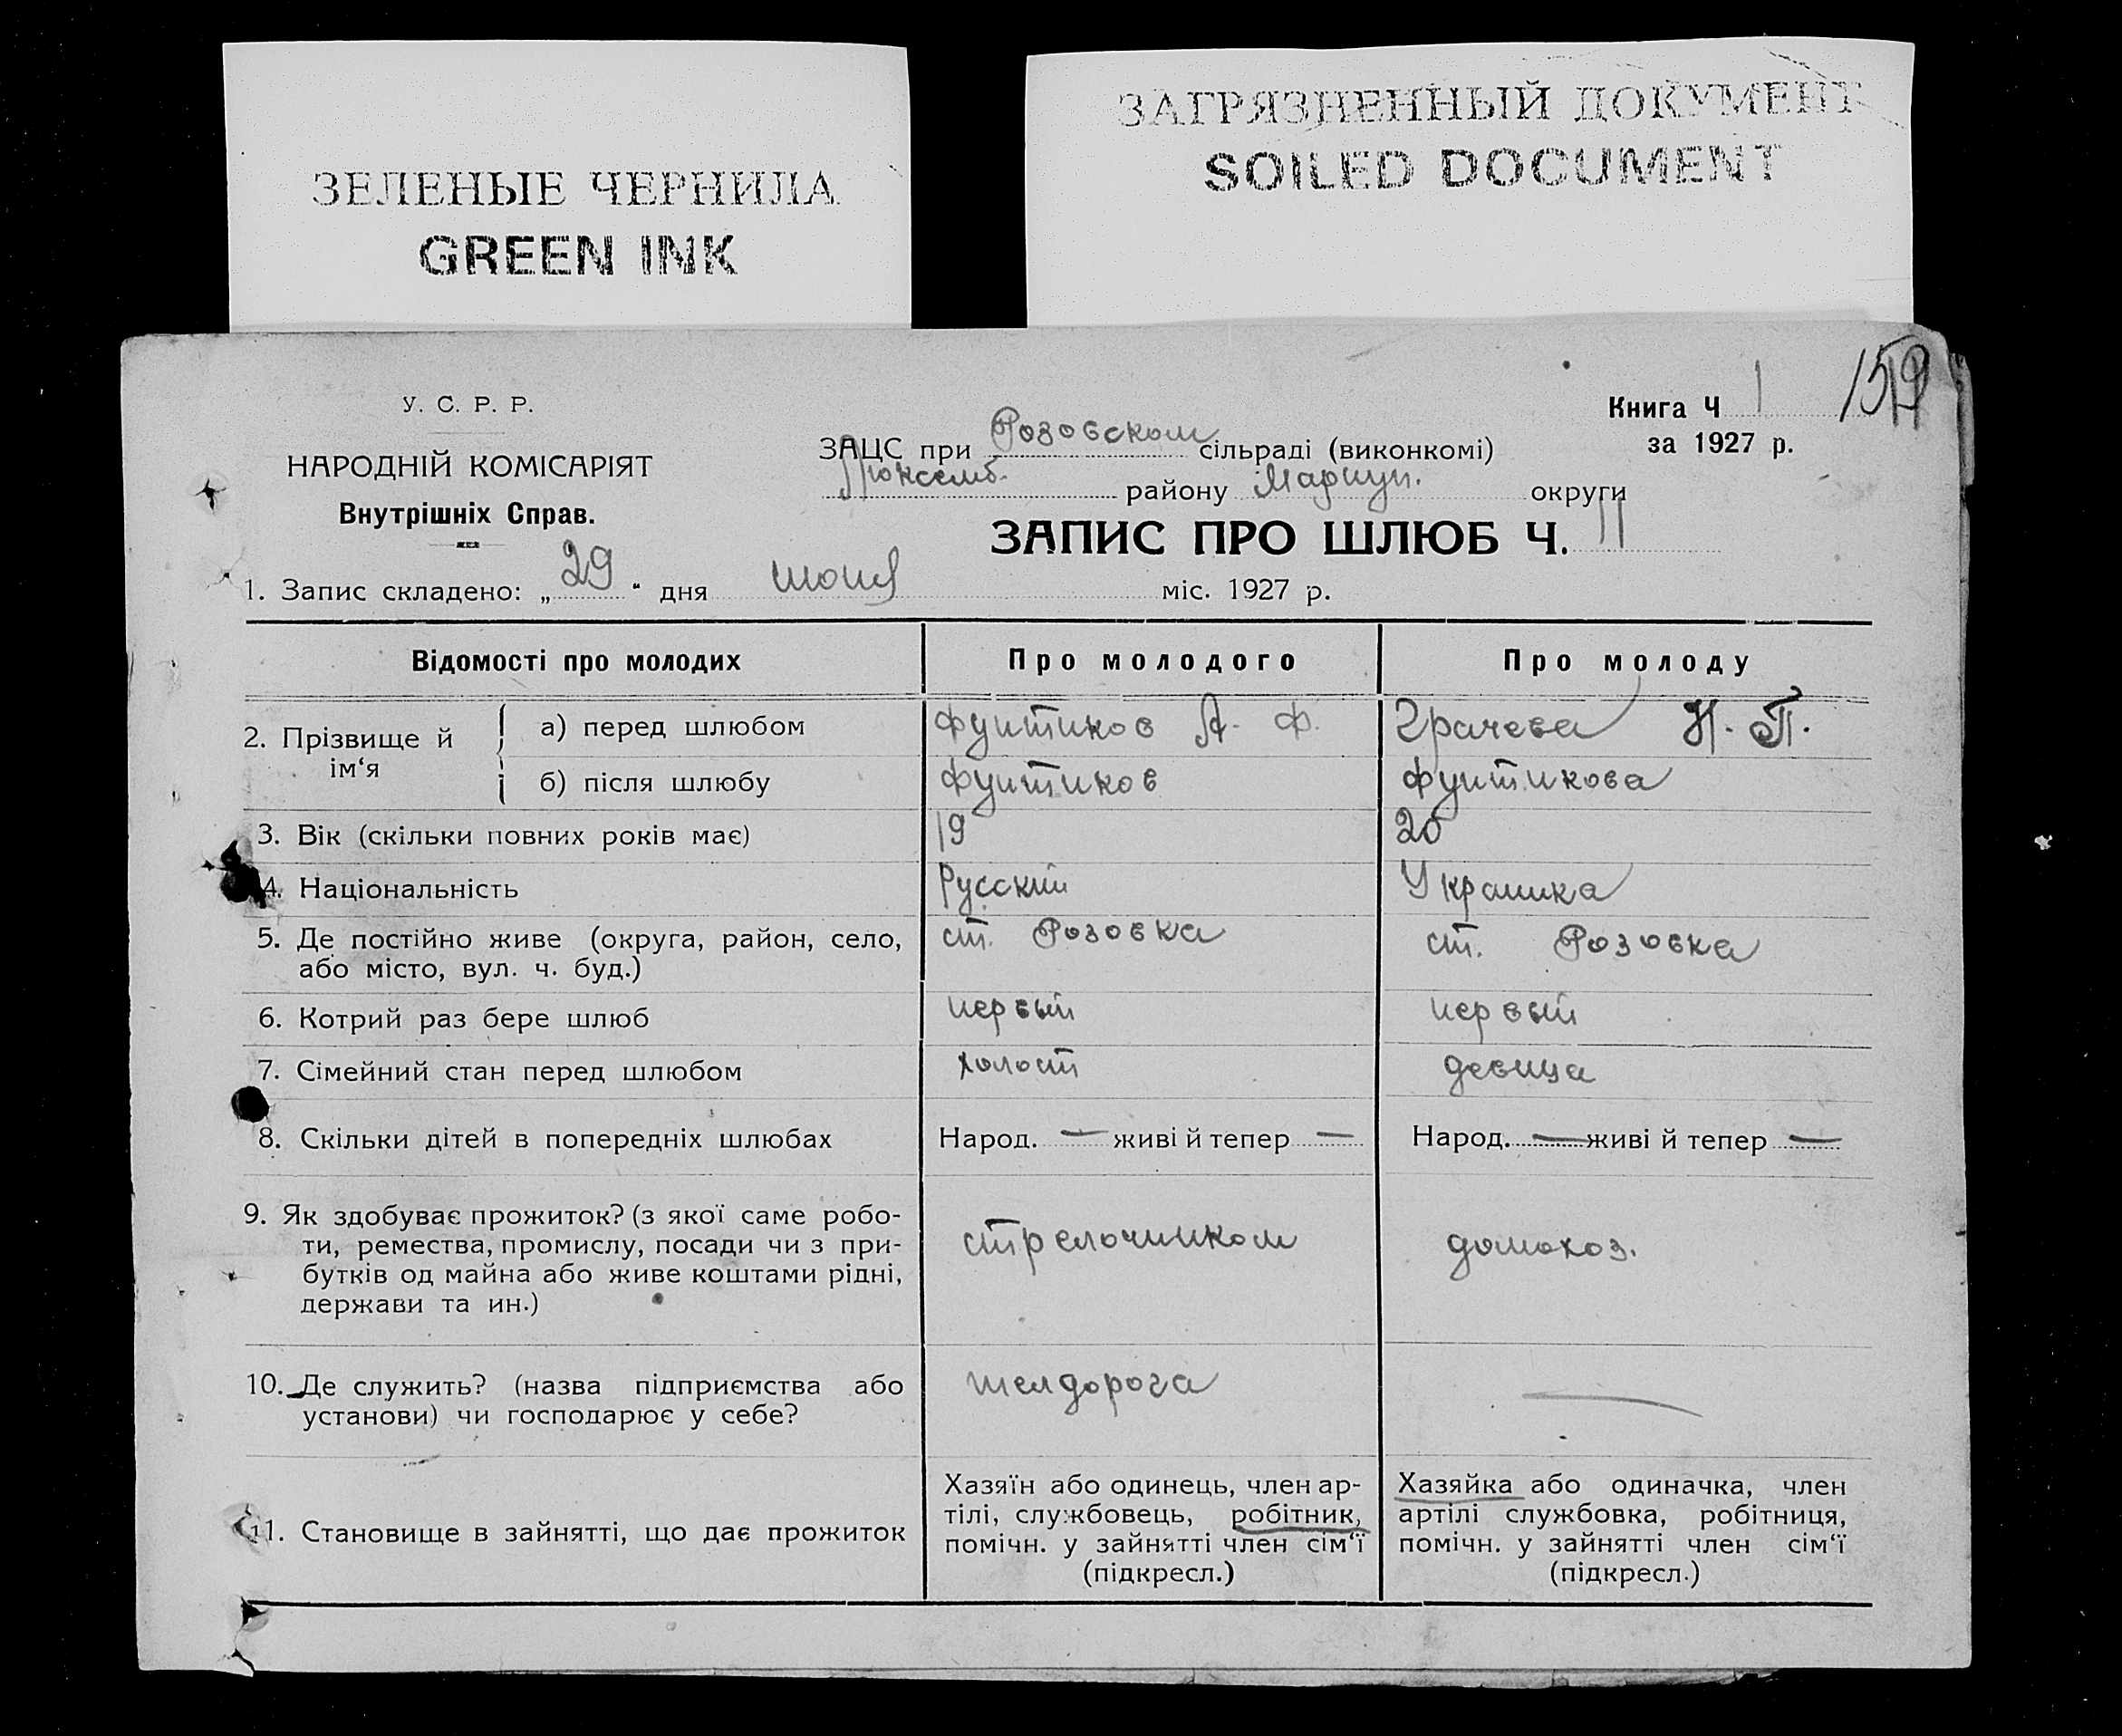 ЗЕЛЕНЫЕ ЧЕРНИЛА
GREEN INK
ЗАГРЯЗНЕННЫЙ ДОКУМЕНТ
SOILED DOCUMENT
У. С. Р. Р.
НАРОДНІЙ КОМІСАРІЯТ
Внутрішніх Справ.
Книга Ч 1
за 1927 р.
ЗАЦС при Розовском сільраді (виконкомі)
Люксемб. району Мариуп. округи
ЗАПИС ПРО ШЛЮБ Ч. 11
1. Запис складено: „ 29 “ дня июня міс. 1927 р.
Відомості про молодих Про молодого Про молоду
2. Прізвище й ім‘я
а) перед шлюбом Фунтиков А. Ф. Грачева Н. П.
б) після шлюбу Фунтиков Фунтикова
3. Вік (скільки повних років має) 19 20
4. Національність Русский Украинка
5. Де постійно живе (округа, район, село, ст. Розовка ст. Розовка
або місто, вул. ч. буд.)
6. Котрий раз бере шлюб первый первый
7. Сімейний стан перед шлюбом холост девица
8. Скільки дітей в попередніх шлюбах Народ. — живі й тепер — Народ. — живі й тепер —
9. Як здобуває прожиток? (з якої саме робо-
ти, ремества, промислу, посади чи з при- стрелочником домохоз.
бутків од майна або живе коштами рідні,
держави та ин.)
10. Де служить? (назва підприємства або желдорога —
установи) чи господарює у себе?
11. Становище в зайнятті, що дає прожиток
Хазяїн або одинець, член ар-
тілі, службовець, робітник,
помічн. у зайнятті член сім‘ї
(підкресл.)
Хазяйка або одиначка, член
артілі службовка, робітниця,
помічн. у зайнятті член сім‘ї
(підкресл.)